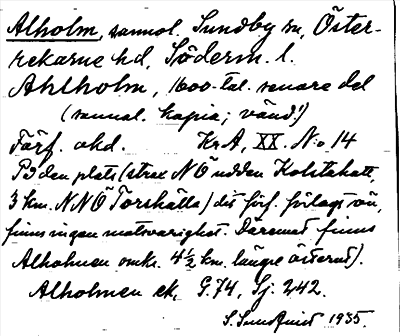 Alholm, sannol. Sundby sn, Öster-
rekarne hd, Söderm. l.
Ahlholm, 1600-tal. senare del
(sannol. kopia; vänd!)
Förf. okd. KrA, XX. N:o 14
På den plats (strax NÖ udden Kolstahatt,
3 km. NNÖ Torshälla) dit förf. förlagt ön,
finns ingen motsvarighet. Däremot finns
Alholmen omkr. 4 1/2 km. längre österut).
Alholmen ek, G.74, Sj. 242.
S. Sundquist 1935.